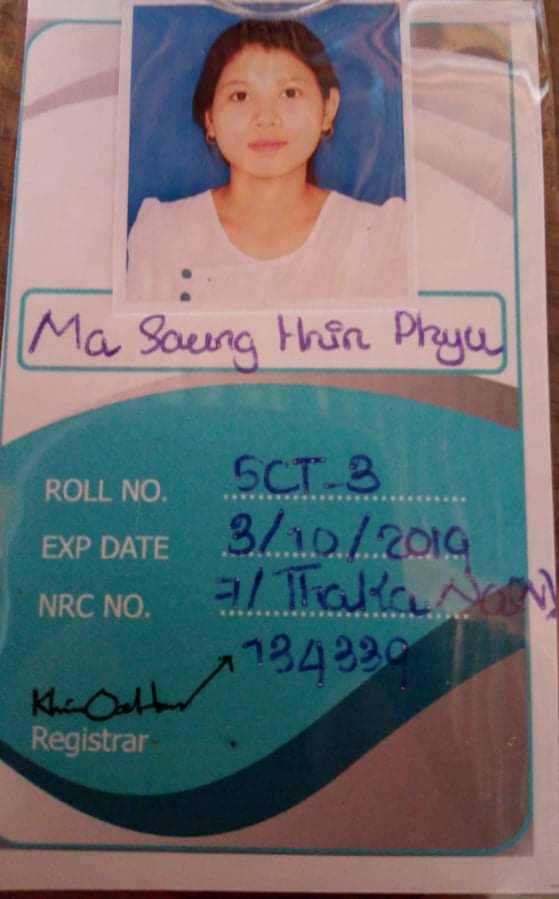 Ma Saung Hnin Phyu
ROLL NO. 5CT-3
EXP DATE 3/10/2019
NRC NO. 7/ThaKa Na(N)
134339
Registrar